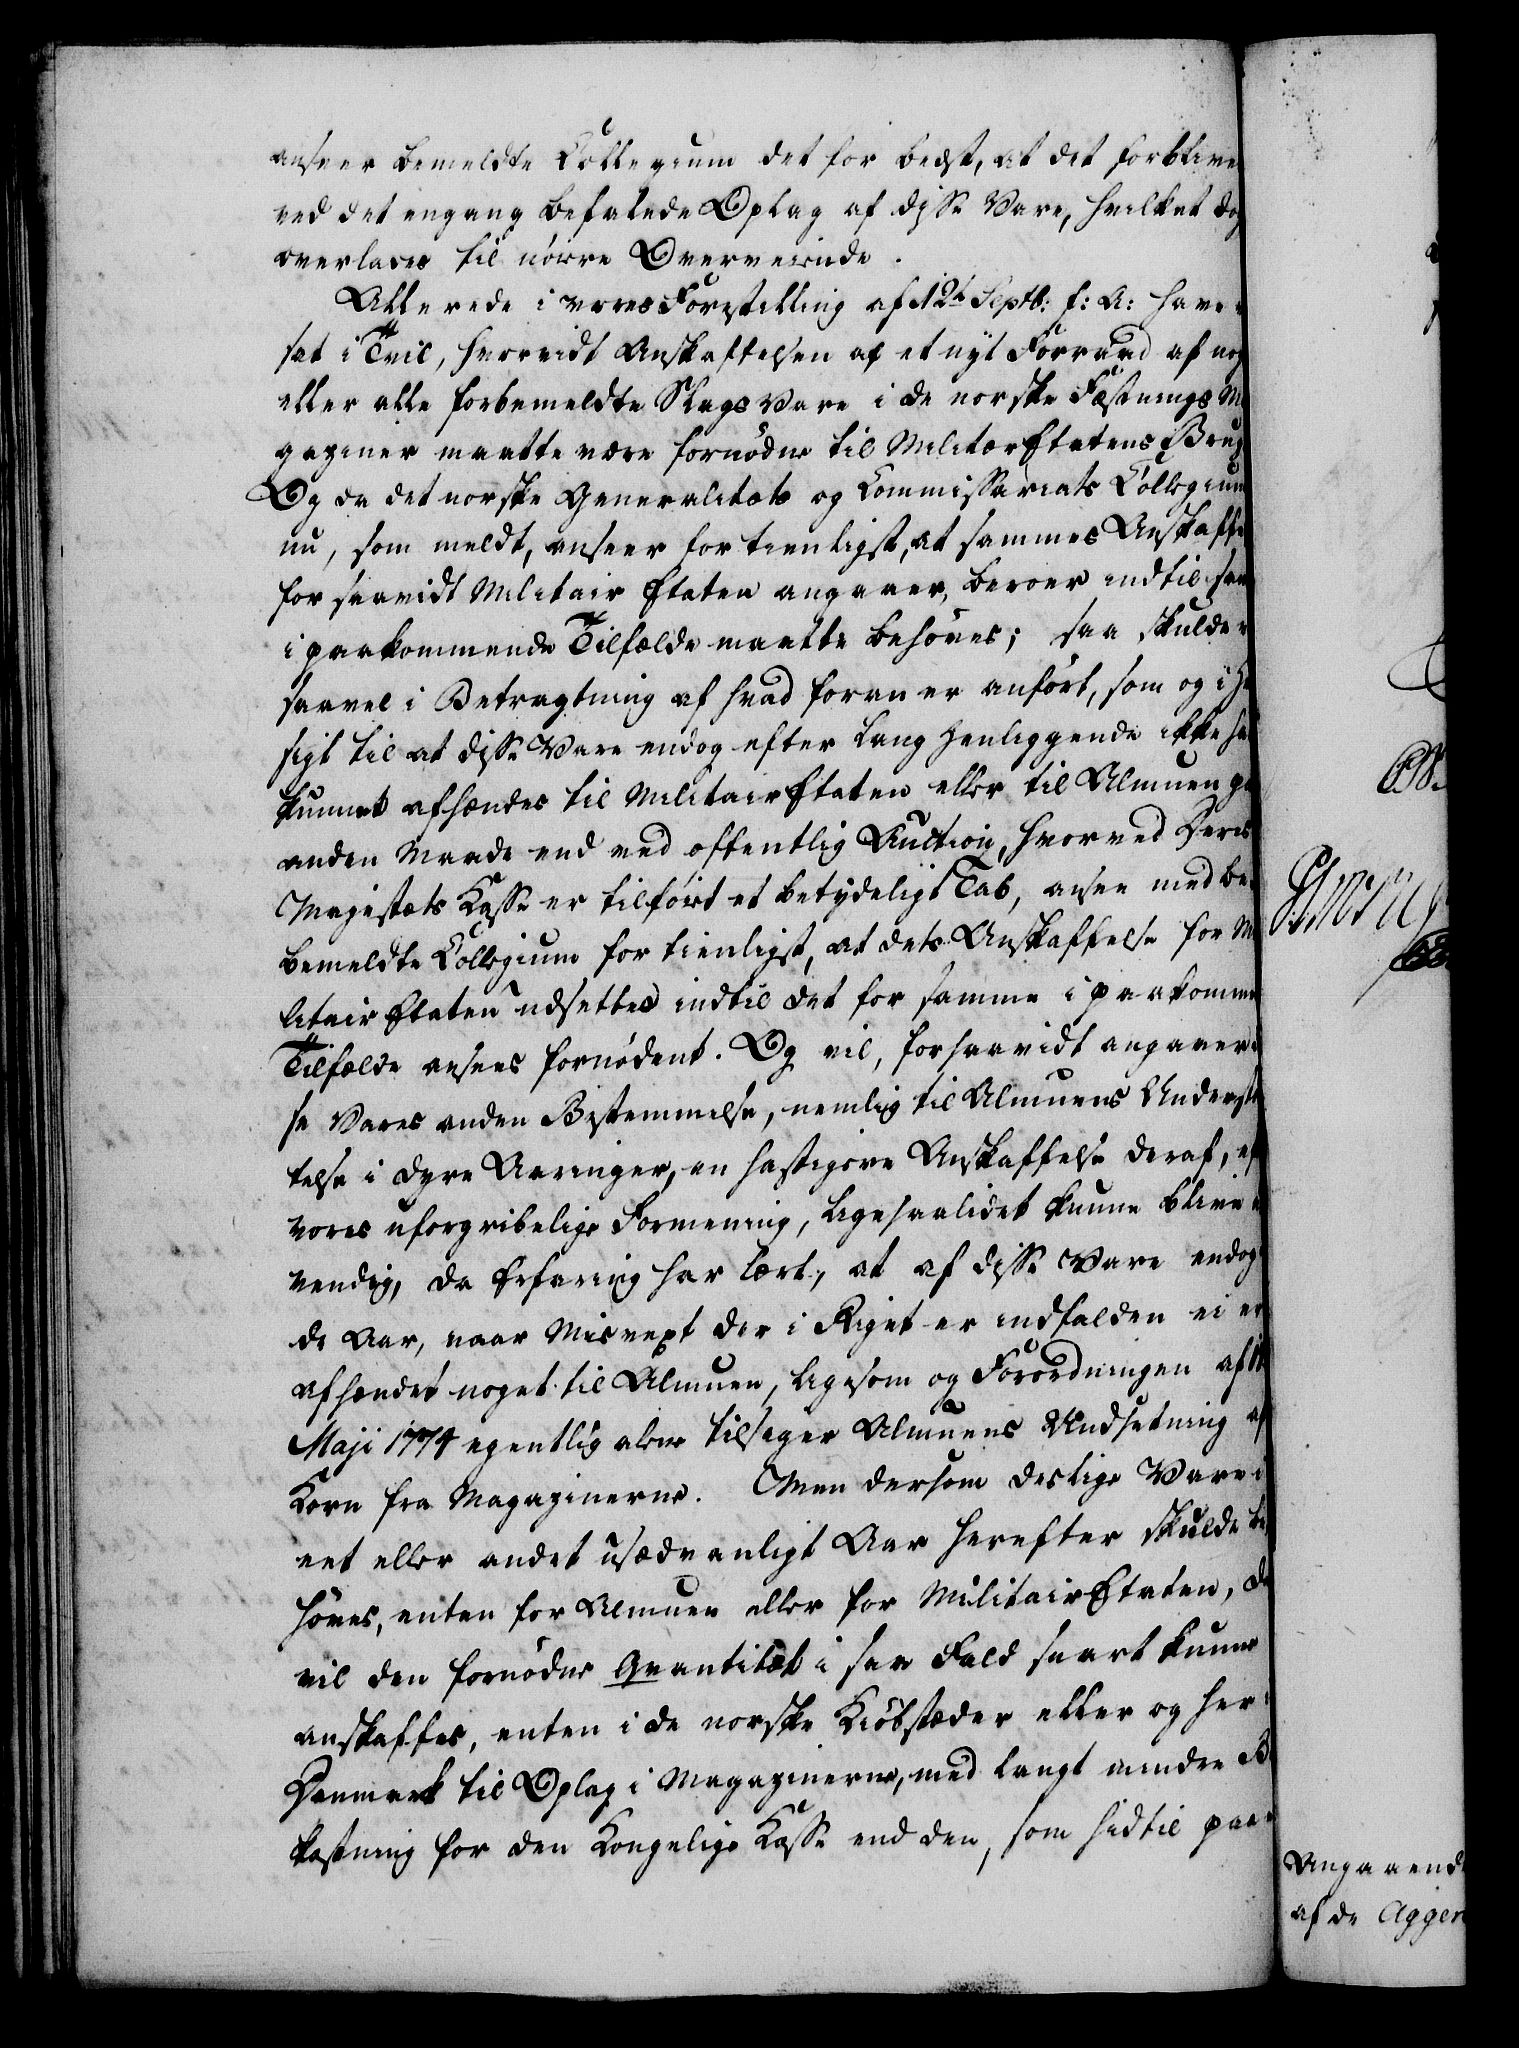 anseer bemeldte Collegium det for bedst, at det forblive
ved det engang befalede Oplag af disse Vare, hvilket do
overlades til nörre Overveiende.
Allerede i vores Forestilling af 12te Septb: f: A: have
sat i Tvil, hvorvidt Anskaffelsen af et nyt Forraad af nog
eller alle forbemeldte Slags Vare i de norske Fæstnings Ma
gaziner maatte være fornödne til Militær Etatens Brug
Og da det norske Generalitæts og Commissariats Collegium
nu, som meldt, anseer for tienligst, at sammes Anskaffe
for saavidt Militair Etaten angaaer, beroer indtil sam
i paakommende Tilfælde maatte behöves; saa skulde v
saavel i Betragtning af hvad foran er anfört, som og i He
sigt til at disse Vare endog efter lang Henliggende ikke ha
kunnet afhændes til Militair Etaten eller til Almuen pa
anden Maade end ved offentlig Auction, hvorved Deres
Majestæts Kasse er tilföiet et betydeligt Tab, ansee med be
bemeldte Collegium for tienligst, at dets Anskaffelse for Mi
litair Etaten udsettes indtil det for samme i paakomme
Tilfælde ansees fornödent. Og vil, forsaavidt angaaer di
se Vares anden Bestemmelse, nemlig til Almuens Underst
telse i dyre Aaringer, en hastigere Anskaffelse deraf, ef
vores uforgribelige Formening, ligesaalidet kunne blive n
vendig, da Erfaring har lært, at af disse Vare endog
de Aar, naar Misvext der i Riget er indfalden ei er
afhændet noget til Almuen, ligesom og Forordningen af 18
Maji 1774 egentlig alene tilsiger Almuens Undsetning af
Korn fra Magazinerne. Men dersom deslige Vare i
eet eller andet usædvanligt Aar herefter skulde be
höves, enten for Almuen eller for Militair Etaten, da
vil den fornödne Qvantitæt i saa Fald snart kunne
anskaffes, enten i de norske Kiöbstæder eller og her i
Danmark til Oplag i Magazinerne, med langt mindre B
kostning for den Kongelige Kasse end den, som hidtil paa
Angaaende
af de Agger